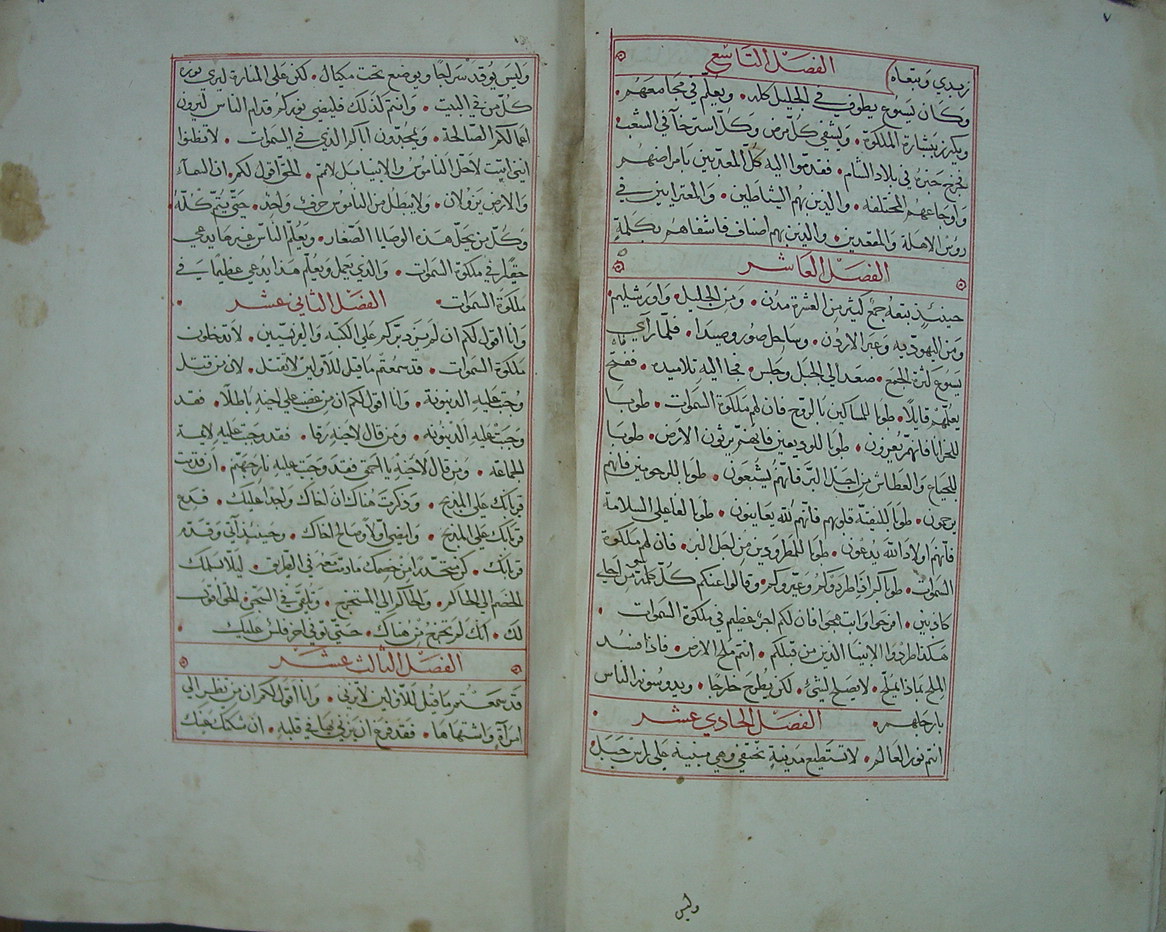 ٧
زبدي وتبعاه
الفصل التاسع
وكان يسوع يطوف في الجليل كله • ويعلّم في مجامعهم •
ويكرز ببشارة الملكوة • ويشفي كلّ مرض وكلّ استرخآ في الشعب
فخرج خبره في بلاد الشام • فقدموا اليه كلّ المعذبين بامراضهم
واوجاعهم المختلفة • والذين بهم الشياطين • والمعترايين في
روس الاهلة والمقعدين • والذين بهم اصناف فاشفاهم بكلمةٍ
الفصل العاشر
حينئذٍ تبعهُ جمعٌ كثير من العشرة مدن • ومن الجليل واورشليم •
ومن اليهوديه وعبر الاردن • وساحل صور وصيدا • فلمّا راي
يسوع كثرة الجمع • صعد الي الجبل وجلس • فجا اليه تلاميذه • ففتح فاه
يعلمهم قايلاً • طوبا للمساكين بالروح فان لهم ملكوة السموات • طوبا
للحزانا فانهم يُعزون • طوبا للوديعين فانهم يرثون الارض • طوبا
للجياع والعطاش من اجل البرّ فانهم يشبعون • طوبا للرحومين فانهم
يرحمون • طوبا للنقيّة قلوبهم فانهم لله يعاينون • طوبا لفاعلي السلامة
فانهم اولاد الله يدعون • طوبا للمطرودين من اجل البر • فان لهم ملكوة
السموات • طوباكم اذا طردوكم وعيّروكم • وقالوا عنكم كلّ كلمةٍ من اجلي
كاذبين • افرحوا وابتهجوا فان لكم اجرٌ عظيم في ملكوة السموات •
هكذا طردوا الانبيا الذين من قبلكم • انتم ملح الارض • فاذا فسد
الملح بماذا يملّح • لا يصلح لشيٍ • لكن يطرح خارجًا • ويدوسونه الناس
بارجلهم •
الفصل الحادي عشر
انتم نور العالم • لا تستطيع مدينة تختفي وهي مبنية علي راس جبل
وليس
وليس يوقد سراجًا ويوضع تحت مكيال • لكن علي المنارة ليري نوره
كل من في البيت • وانتم كذلك فليضي نوركم قدام الناس ليرون
اعمالكم الصالحة • ويمجدون اباكم الذي في السموات • لا تظنوا
انني اتيت لاحلّ الناموس والانبيا بل لاتمم • الحق اقول لكم • ان السمآء
والارض يزولان • ولا يبطل من الناموس حرف واحد • حتّي يتمّ كلّه •
وكلّ من يحلّ هذه الوصايا الصغار • ويُعلّم الناس غيرها يدعي
حقيرًا في ملكوة السموات • والذي يعمل ويُعلّم هذا يدعي عظيمًا في
ملكوة السموات •
الفصل الثاني عشر •
وانا اقول لكم ان لم يزد برّكم علي الكتبه والفريسيين • لا تدخلون
ملكوة السموات • قد سمعتم ما قيل للاولين لا تقتل • لان من قتل
وجب عليه الدينونة • وانا اقول لكم ان من غضب علي اخيه باطلاً • فقد
وجبت عليه الدينونه • ومن قال لاخيه رقا • فقد وجب عليه لائمة
الجماعه • ومن قال لاخيه يا احمق فقد وجبت عليه نار جهنم • ان قدمت
قربانك علي المذبح • وذكرت هناك ان اخاك واجدًا عليك • فدع
قربانك علي المذبح • وامضي اولاً وصالح اخاك • وحينئذٍ اتي وقدم
قربانك • كن متحذرًا من خصمك ما دمت معه في الطريق • ليلا يسلمك
الخصم الي الحاكم • والحاكم الي المستخرج • وتلقي في السجن • الحق اقول
لك • انك لم تخرج من هناك • حتي توفي اخر فلس عليك •
الفصل الثالث عشر
قد سمعتم ما قيل للاولين لا تزني • وانا اقول لكم ان من نظر الي
امراةٍ واشتهاها • فقد زنا بها في قلبه • ان شككتك عينك